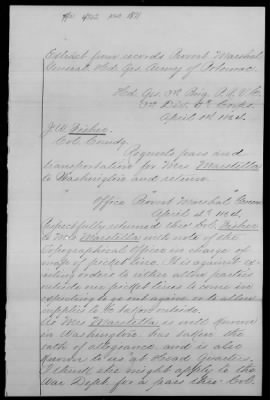 Extract from records Provost Marshal
General, Hd. Qrs. Army of Potomac.
Hd. Qrs. 3rd Brig. P. R. V. C.
3rd Div. 5th Corps.
April 1st 1864.
J. W. Fisher
Col. Comdg.
Requests pass and
transportation for Mrs Marstilla
to Washington and return.
Office Provost Marshal General
April 2d 1864.
Respectfully returned thro' Col. Fisher
to Mrs Marstilla with note of the
Topographical Officer in charge of
map of picket line. It is against ex-
isting orders to either allow parties
outside our picket lines to come in
expecting to go out again or to allow
supplies to be taken outside.
As Mrs Marstilla is well known
in Washington, has taken the
oath of allegiance, and is also
known to us at Head Quarters,
I think she might apply to the
War Dept. for a pass thro' Col.